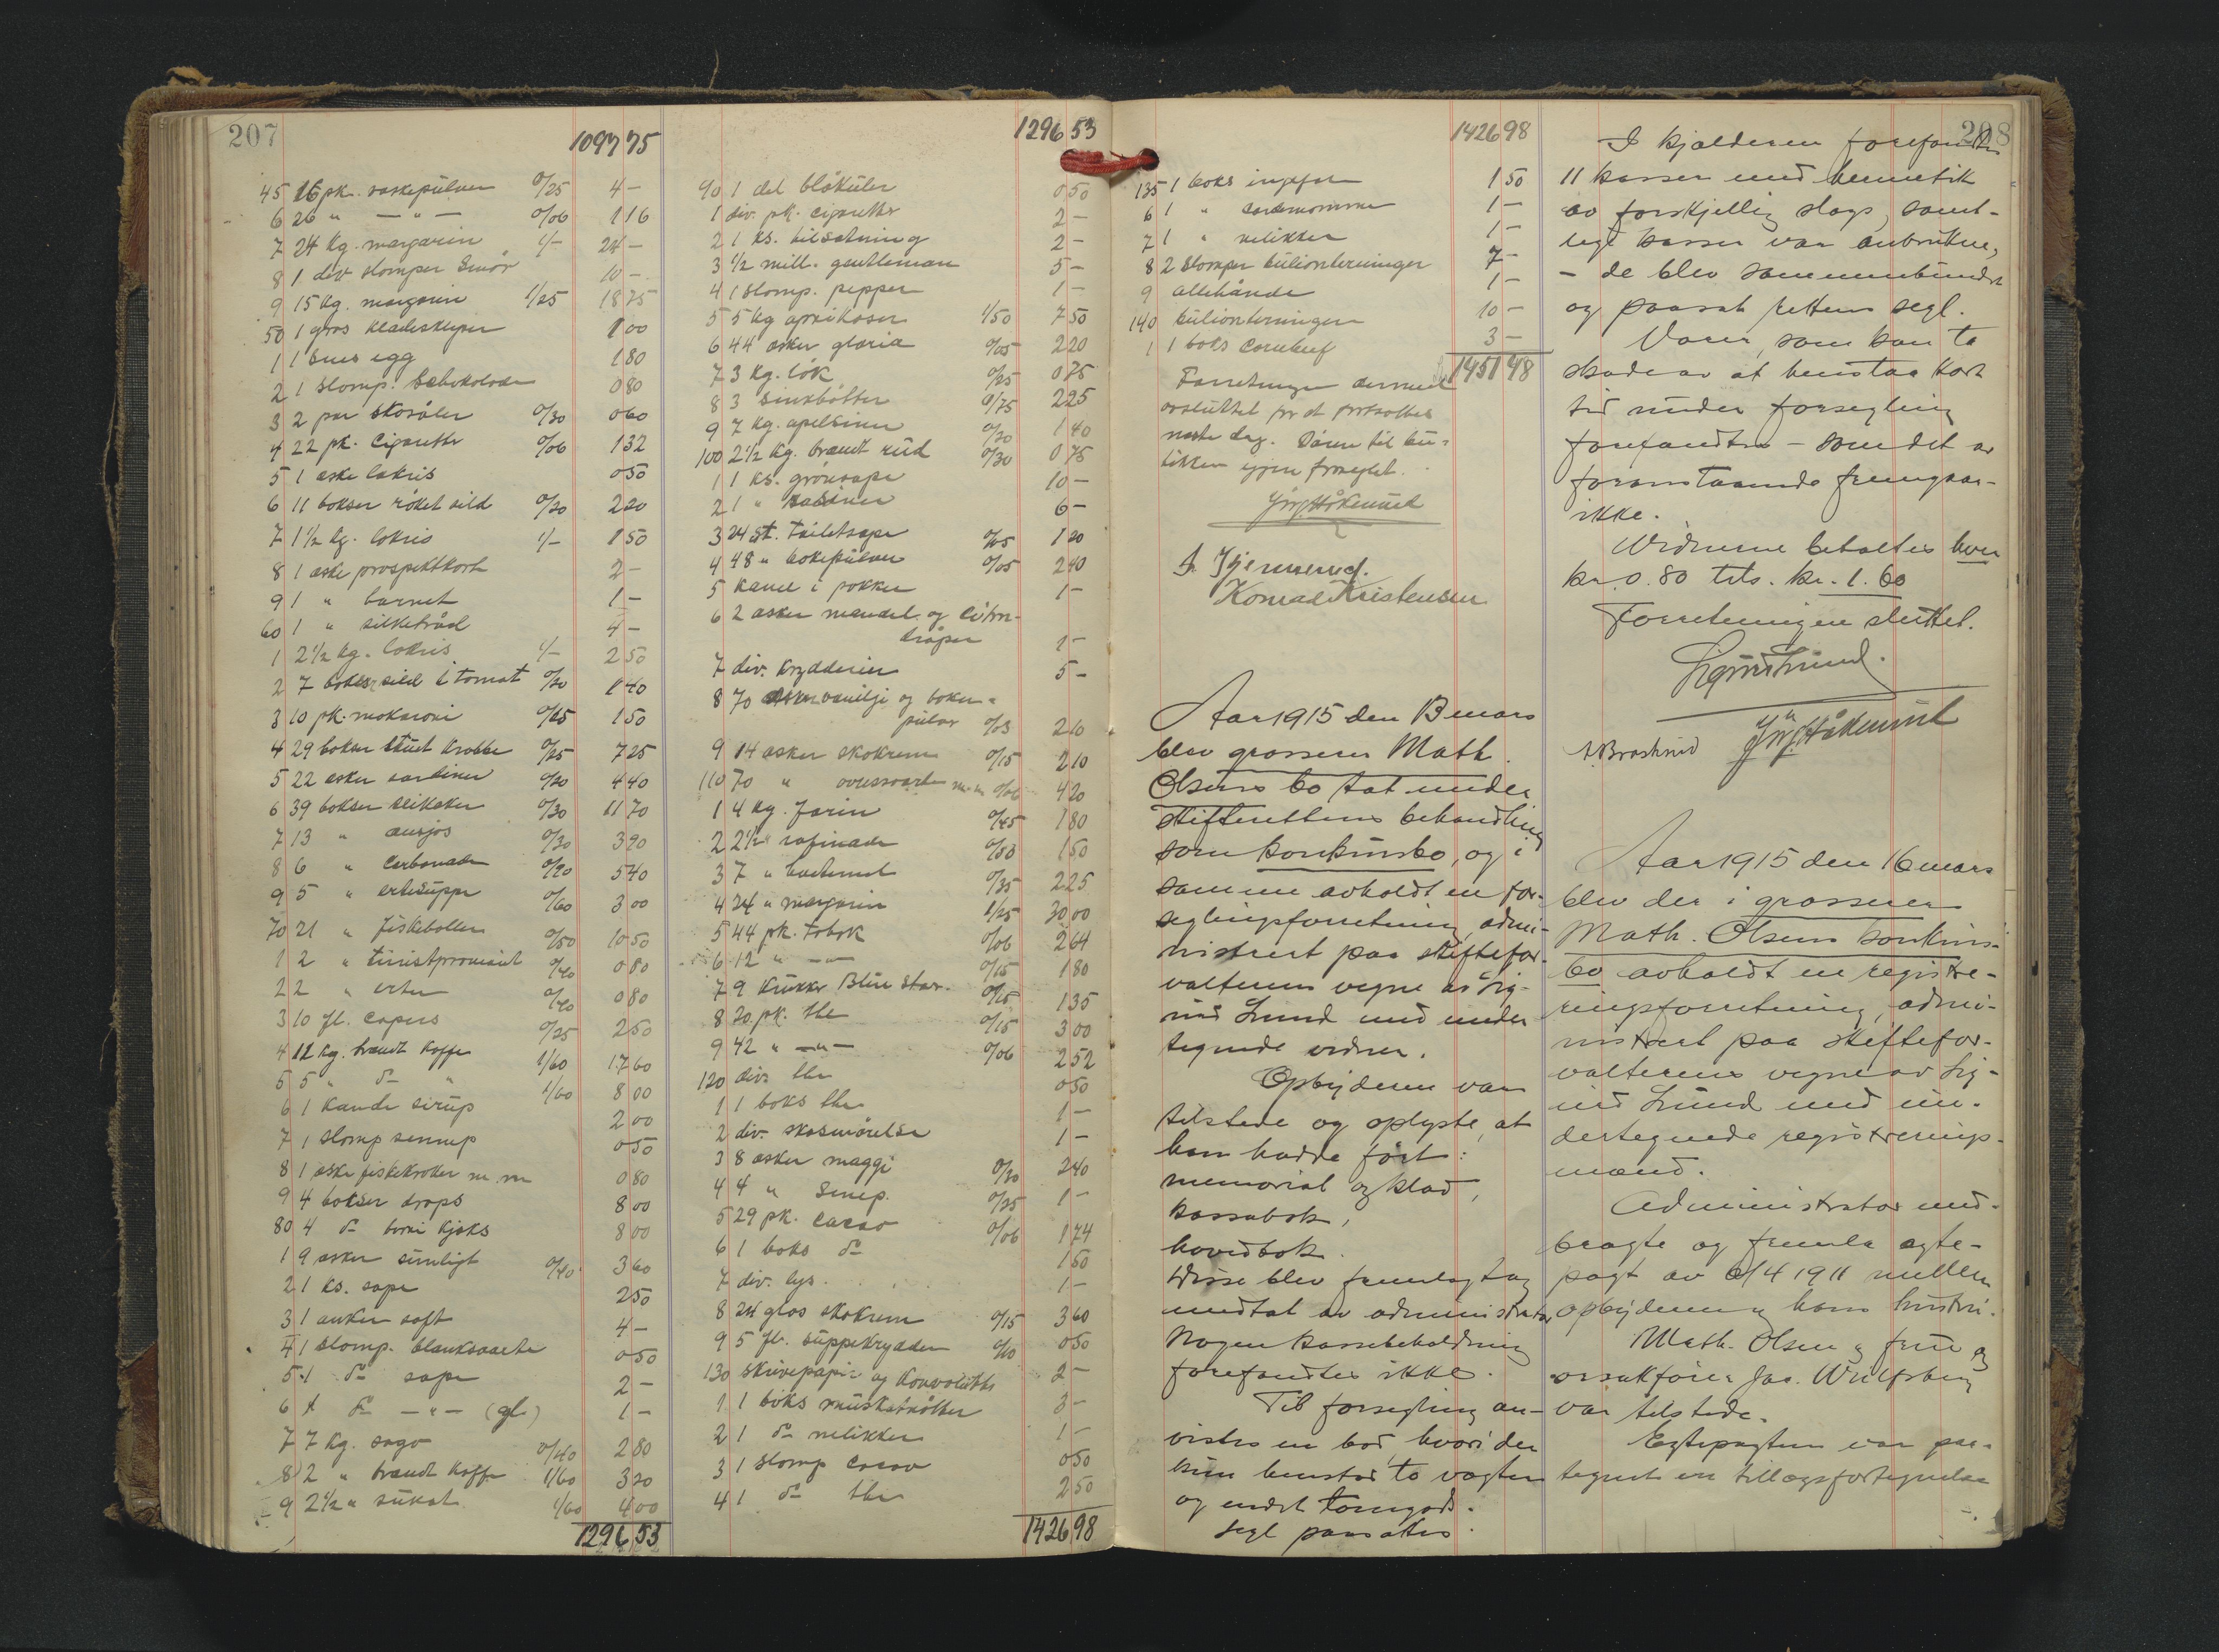 207
1097 75
45 16 pk. vaskepulver 0/25 4 –
6 26 " – " – 0/06 1 16
7 24 kg. margarin 1/– 24 –
8 1 del slomper smör 10 –
9 15 kg. margarin 1/25 18 75
50 1 gros kladeskyper 1 00
1 1 snes egg 1 80
2 1 slomp. 0 80
3 2 par skosåler 0/30 0 60
4 22 pk. cigaretter 0/06 1 32
5 1 æske lakris 0 50
6 11 bokser röket sild 0/20 2 20
7 1½ kg. lakris 1/– 1 50
8 1 æske prospektkort 2 –
9 1 " barnet 1 –
60 1 " silketråd 4 –
1 2½ kg. lakris 1/– 2 50
2 7 bokser sild i tomat 0/20 1 40
3 10 pk. makaroni 0/15 1 50
4 29 bokser stuet krabbe 0/25 7 25
5 22 æsker sardiner 0/20 4 40
6 39 bokser delikater 0/30 11 70
7 13 " ansjos 0/30 3 90
8 6 " carbonader 0/90 5 40
9 5 " ertesuppe 0/60 3 00
70 21 " fiskeboller 0/50 10 50
1 2 " turistproviant 0/40 0 80
2 2 " erter 0/40 0 80
3 10 fl. capers 0/25 2 50
4 11 kg. brændt kaffe 1/60 17 60
5 5 " do " 1/60 8 00
6 1 kande sirup 2 00
7 1 slomp sennep 0 50
8 1 æske fiskekroker m.m 0 80
9 4 bokser drops 8 00
80 4 do kjeks 8 00
1 9 æsker sunligt 0/40 3 60
2 1 ks. sæpe 2 50
3 1 anker saft 4 –
4 1 slomp. blanksværte 0 50
5 1 do sæpe 2 –
6 1 do – " – (gl.) 1 –
7 7 kg. sago 0/40 2 80
8 2 " brændt kaffe 1/60 3 20
9 2½ " sukat 1/60 4 00
1296 53
1296 53
90 1 del blåkuler 0 50
1 div. pk. cigaretter 2 –
2 1 ks. tilsætning 2 –
3 ½ mill. gentleman 5 –
4 1 slomp. pepper 1 –
5 5 kg aprikoser 1/50 7 50
6 44 æsker gloria 0/05 2 20
7 3 kg. lök 0/25 0 75
8 3 sinkbötter 0/75 2 25
9 7 kg. apelsiner 0/20 1 40
100 2½ kg. brændt rüd 0/30 0 75
1 1 ks. grönsæpe 10 –
2 1 " rosiner 6 –
3 24 st. toiletsæpe 0/05 1 20
4 48 " bakepulver 0/05 2 40
5 kanel i pakker 1 –
6 2 æsker mandel- og citron-
dråper 1 –
7 div. krydderier 5 –
8 70 æsker vanilje og bake-
pulver 0/03 2 10
9 14 æsker skokrem 0/15 2 10
110 70 " ovnssværte m.m 0/06 4 20
1 4 kg. farin 0/45 1 80
2 2½ " rafinade 0/53 1 50
3 7 " 0/35 2 25
4 24 " margarin 1/25 30 00
5 44 pk. tobak 0/06 2 64
6 12 " – " – 0/15 1 80
7 9 krukker Blue Star 0/15 1 35
8 20 pk. the 0/15 3 00
9 42 " – " – 0/06 2 52
120 div. the 0 50
1 1 boks the 1 –
2 div. skosmörelse 1 –
3 8 æsker maggi 0/30 2 40
4 4 " senep. 0/25 1 –
5 29 pk. cacao 0/06 1 74
6 1 boks do 1 50
7 div. lys 1 –
8 24 glas skokrem 0/15 3 60
9 5 fl. suppekrydder 0/10 0 50
130 skrivepapir og konvolutter 2 –
1 1 boks muskatnötter 3 –
2 1 do nelikker 1 –
3 1 slomp cacao 0 50
4 1 do the 2 50
1426 98
1426 98
135 1 boks ingefær 1 50
6 1 " cardemomme 1 –
7 1 " nelikker 1 –
8 2 slomper bulionterninger 7 –
9 allehånde 1 –
140 bulionterninger 10 –
1 1 boks cornbeef 3 –
1451 48
Forretningen dermed
avsluttet for at fortsættes
næste dag. Dören til bu-
tikken igjen forseglet.
Jörg. Håkerud
Konrad Kristensen
Aar 1915 den 13 mars
blev grosserer Math.
Olsens bo tat under
skifterettens behandling
som konkursbo, og i
samme avholdt en for-
seglingsforretning, admi-
nistrert paa skiftefor-
valterens vegne av Sig-
urd Lund med under
tegnede vidner.
Opbyderen var
tilstede og oplyste, at
han hadde fört:
memorial og klad,
kassabok,
hovedbok.
Disse blev fremlagt og
mottat av administrator
Nogen kassebeholdning
forefandtes ikke.
Til forsegling an-
vistes en bod, hvori der
kun henstod to vægter
og endel tomgods.
Segl paasattes.
208
I kjælderen forefandtes
11 kasser med hermetik
av forskjellig slags, samt-
lige kasser var anbrutne,
– de blev sammenbundet
og paasat rettens segl.
Varer, som kan ta
skade av at henstaa kort
tid under forsegling
forefandtes – som det av
foranstaaende fremgaar –
ikke.
Vidnerne betaltes hver
kr. 0.80 tils. kr. 1.60
Forretningen sluttet.
Sigurd Lund.
Jörg. Håkerud
Aar 1915 den 16 mars
blev der i grosserer
Math. Olsens konkurs-
bo avholdt en registre-
ringsforretning, admi-
nistrert paa skiftefor-
valterens vegne av Sig-
urd Lund med un-
dertegnede registrerings-
mænd.
Administrator med-
bragte og fremla egte-
pagt av 6/4 1911 mellem
opbyderen og hans hustru.
Math. Olsen og frue og
orsakförer Jac. Wulfsberg
var tilstede.
Egtepagten var paa-
tegnet en tillægsfortegnelse